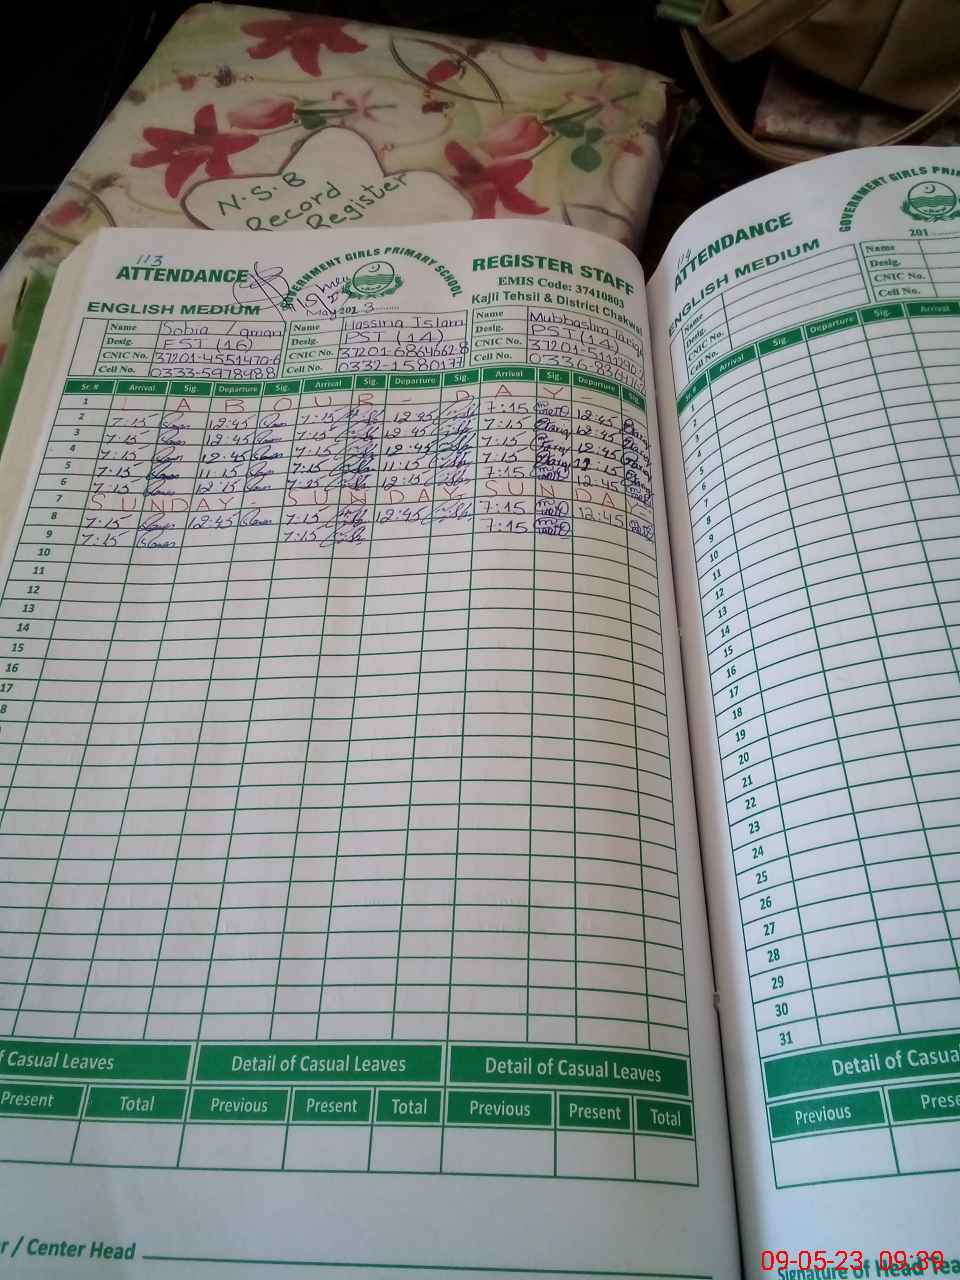 N.S.B
Record
Register
113
ATTENDANCE
GOVERNMENT GIRLS PRIMARY SCHOOL
REGISTER STAFF
EMIS Code: 37410803
Kajli Tehsil & District Chakwal
ENGLISH MEDIUM
May 2013
Name Sobia Name Name
Desig. EST (16) Desig. PST (14) Desig. PST (14)
CNIC No. 37201-4551470-6 CNIC No. 37201-6864662-8 CNIC No.
Cell No. 0333-5978988 Cell No. 0332-1580177 Cell No.
Sr. # Arrival Sig. Departure Sig. Arrival Sig. Departure Sig. Arrival Sig. Departure Sig.
1 LABOUR - DAY -
2 7:15 12:45 7:15 12:45 7:15 12:45
3 7:15 12:45 7:15 12:45 7:15 12:45
4 7:15 12:45 7:15 12:45 7:15 12:45
5 7:15 11:15 7:15 11:15 7:15 11:15
6 7:15 12:15 7:15 12:15 7:15 12:45
7 SUNDAY SUNDAY SUNDAY
8 7:15 12:45 7:15 12:45 7:15 12:45
9 7:15 7:15 7:15
10
11
12
13
14
15
16
17
8
f Casual Leaves Detail of Casual Leaves Detail of Casual Leaves
Present Total Previous Present Total Previous Present Total
r / Center Head
114
ATTENDANCE
GOVERNMENT GIRLS PRIM
201
ENGLISH MEDIUM
Name
Desig.
CNIC No.
Cell No.
Sr. # Arrival Sig. Departure Sig. Arrival
1
2
3
4
5
6
7
8
9
10
11
12
13
14
15
16
17
18
19
20
21
22
23
24
25
26
27
28
29
30
31
Detail of Casua
Previous Prese
Signature of Head Tea
09-05-23 09:39